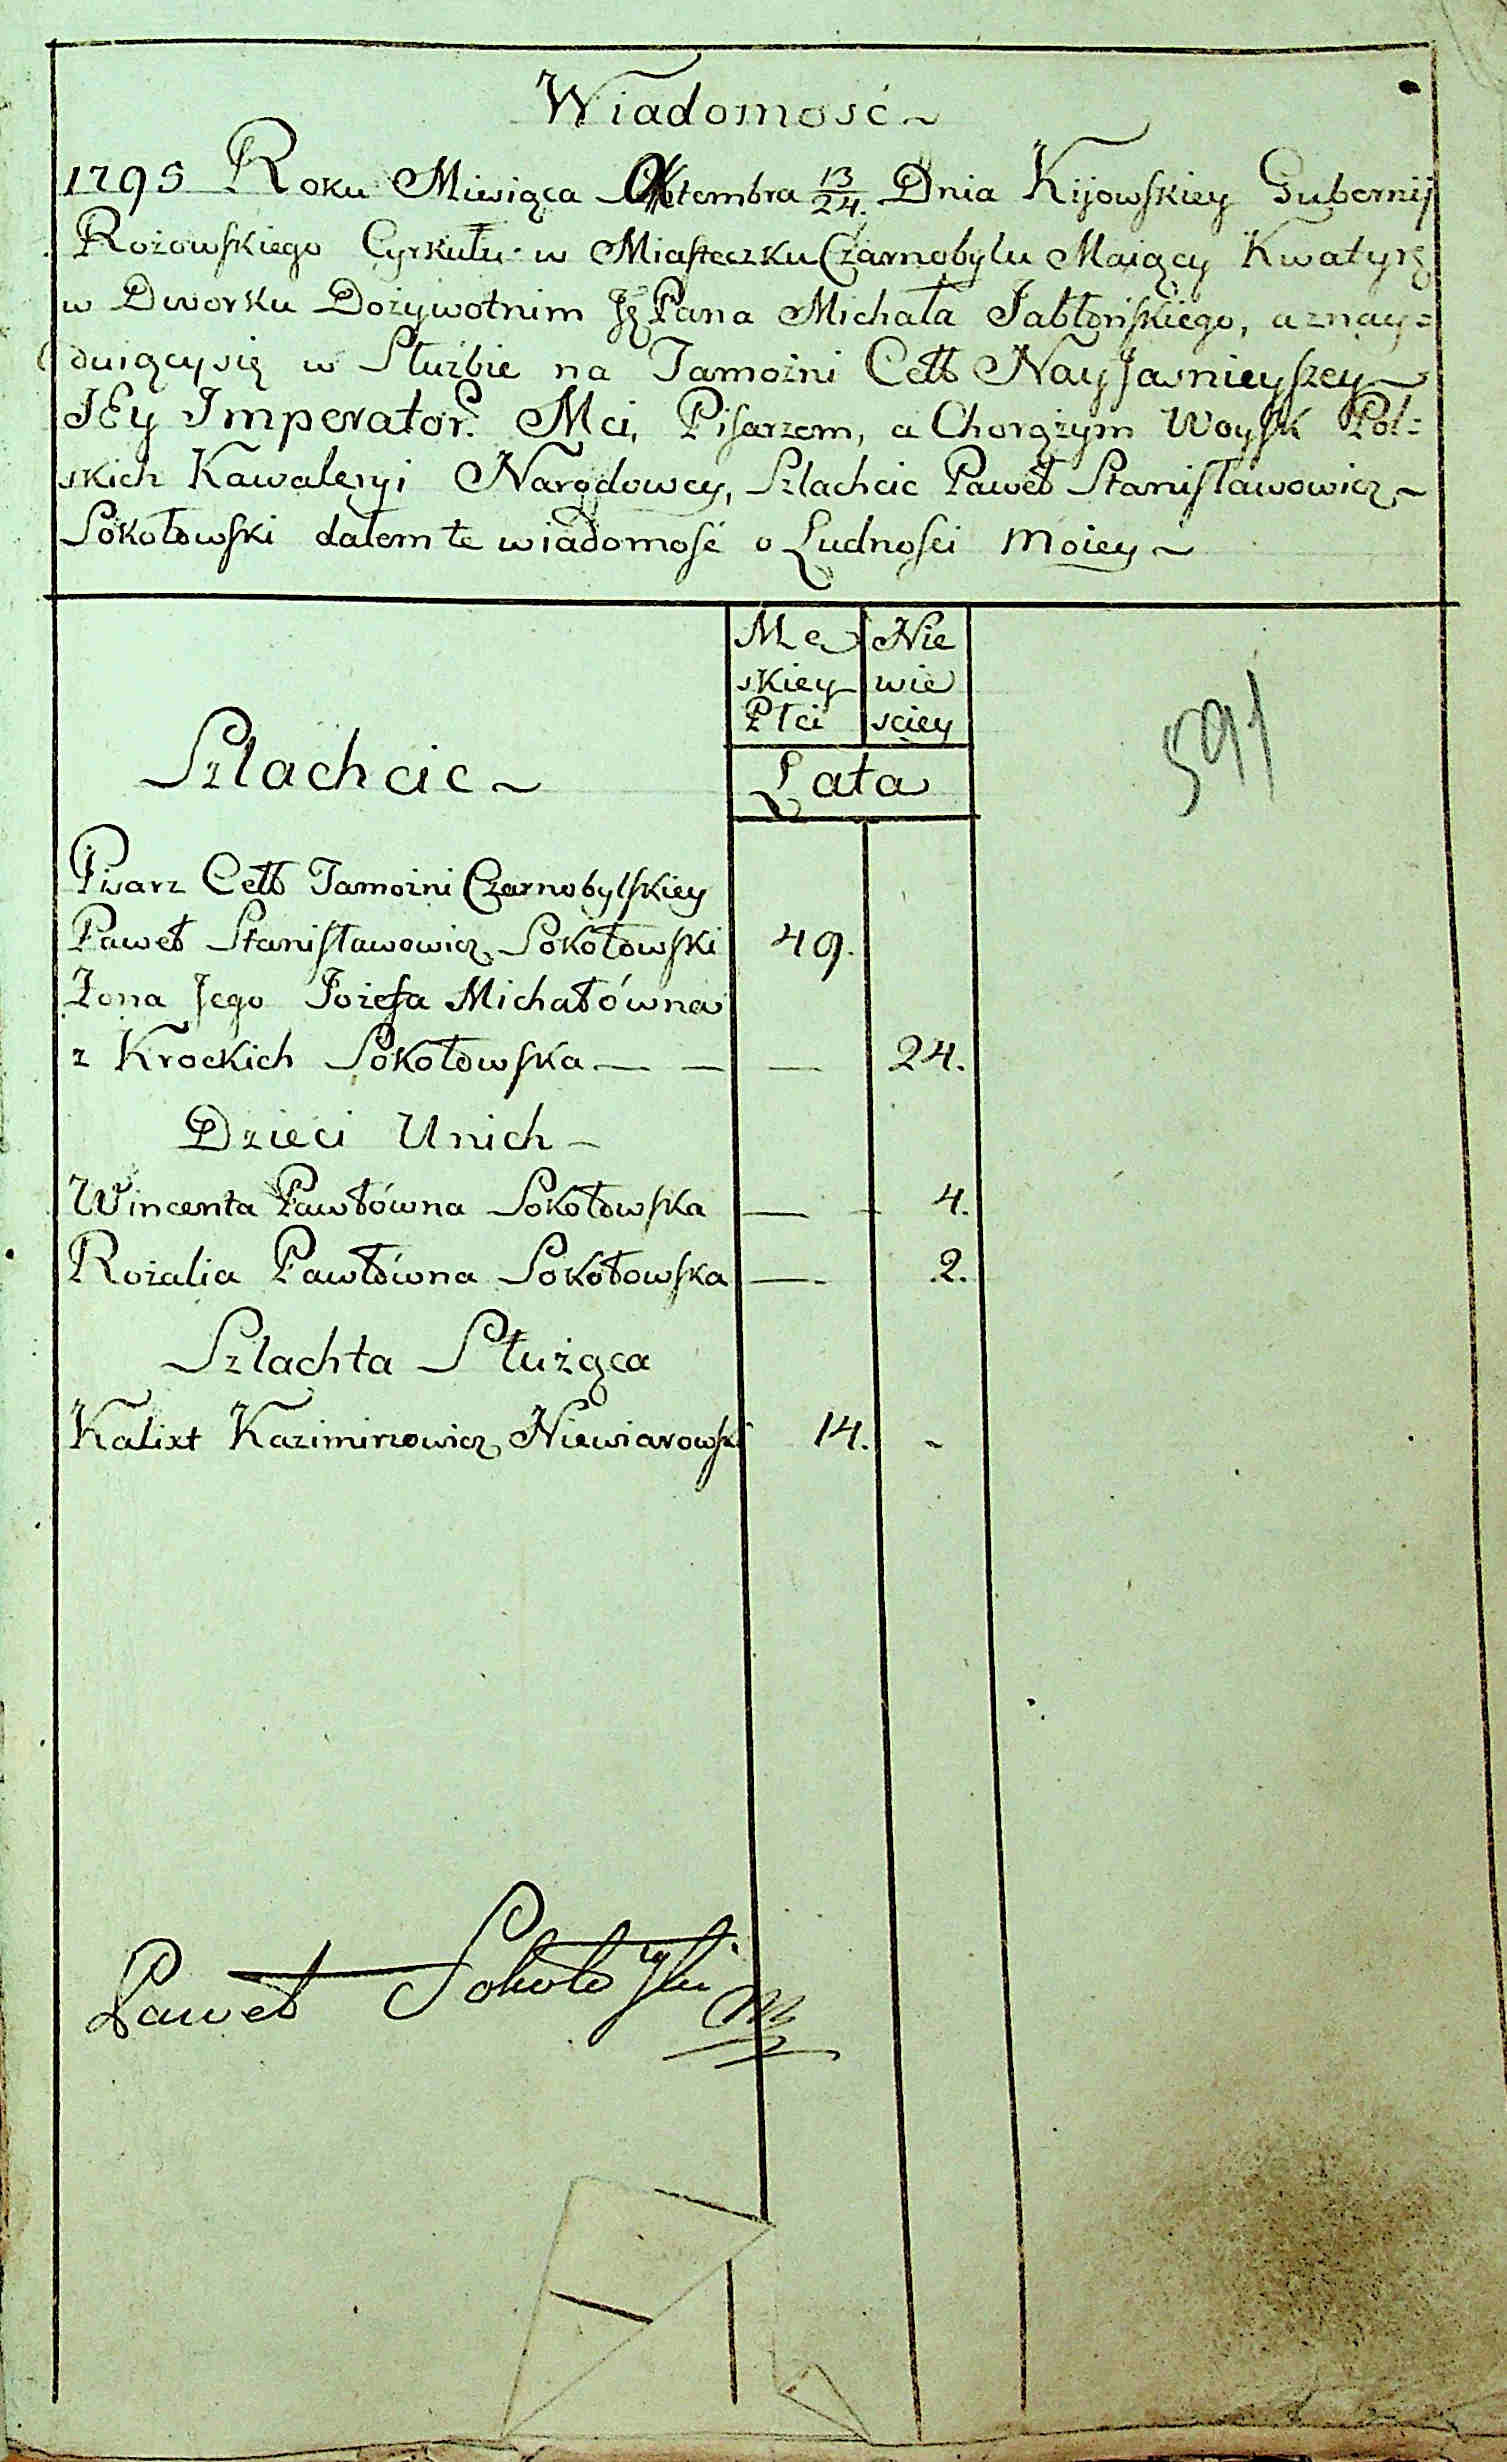 Wiadomość
1795 Roku Miesiąca Oktembra 13/24. Dnia Kijowskiey Gubernij
Rożowskiego Cyrkułu w Miasteczku Czarnobylu Maiący Kwatyrę
w Dworku Dożywotnim Pana Michała Jabłońskiego, a znay=
duiący się w Służbie na Tamożni Cełł Nayjasnieyszey
JEy Imperator. Mci, Pisarzem, a Chorążym Woysk Pol=
skich Kawaleryi Narodowey, Szlachcic Paweł Stanisławowicz
Sokołowski dałem te wiadomość o Ludności moiey
Mę Nie
skiey wie
Płci sciey
Szlachcic
Lata
591
Pisarz Cełł Tamożni Czarnobylskiey
Paweł Stanisławowicz Sokołowski 49.
Żona Jego Jozefa Michałówna
z Krockich Sokołowska — — — 24.
Dzieci Unich
Wincenta Pawłówna Sokołowska — - 4.
Rozalia Pawłówna Sokołowska — 2.
Szlachta Służąca
Kalixt Kazimirzowicz Niewiarowski 14. -
Paweł Sokołowski